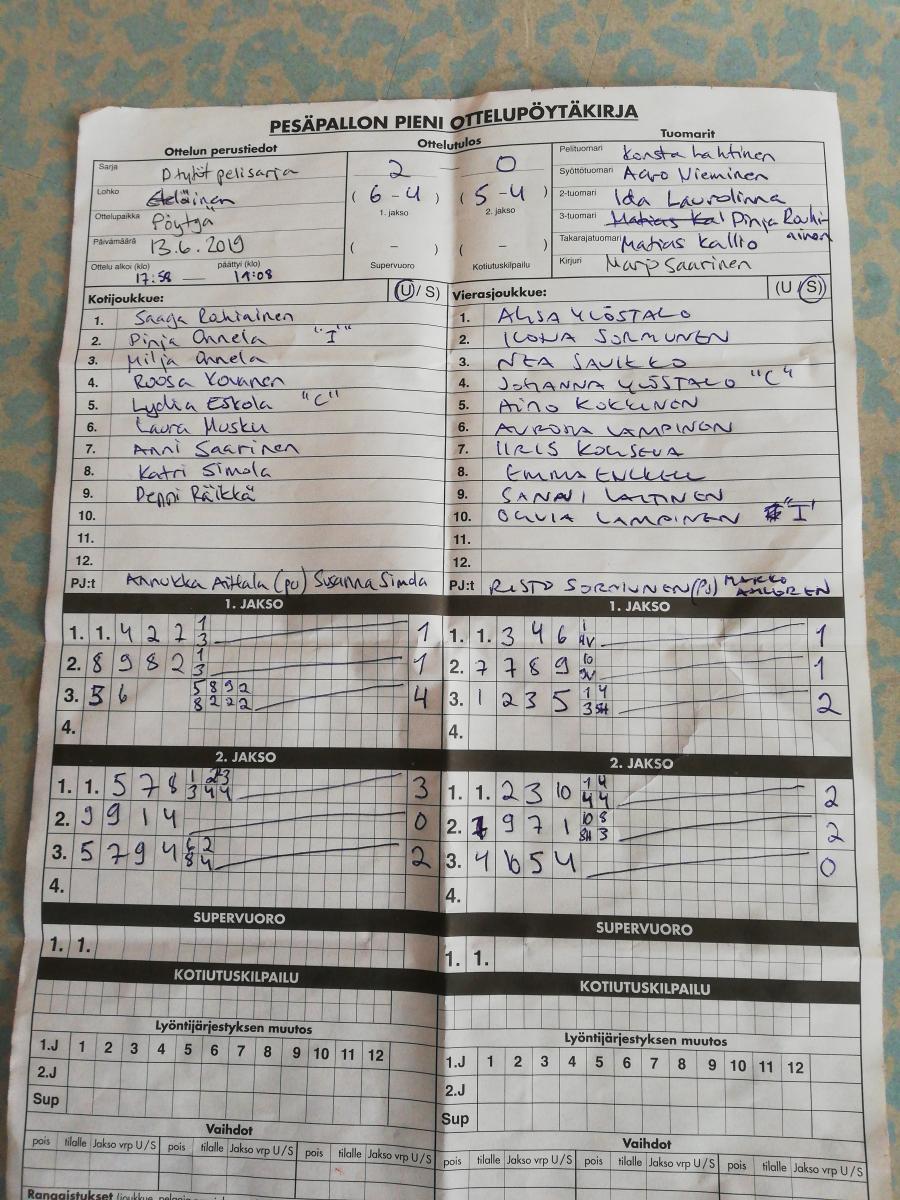 PESÄPALLON PIENI OTTELUPÖYTÄKIRJA
Ottelun perustiedot
Sarja D tytöt pelisarja
Lohko Eteläinen
Ottelupaikka Pöytyä
Päivämäärä 13.6.2019
Ottelu alkoi (klo) päättyi (klo)
17:58 — 19:08
Ottelutulos
2 — 0
( 6 - 4 ) ( 5 - 4 )
1. jakso 2. jakso
( - ) ( - )
Supervuoro Kotiutuskilpailu
Tuomarit
Pelituomari Konsta Lahtinen
Syöttötuomari Aaro Nieminen
2-tuomari Ida Laurolinna
3-tuomari Matias Kal Pinja Rauhiainen
Takarajatuomari Matias Kallio
Kirjuri Marjo Saarinen
Kotijoukkue: (U / S)
1. Saaga Rahiainen
2. Pinja Onnela "I"
3. Milja Onnela
4. Roosa Kovanen
5. Lydia Eskola "C"
6. Laura Husku
7. Anni Saarinen
8. Katri Simola
9. Peppi Räikkä
10.
11.
12.
PJ:t Annukka Aittala (pj) Susanna Simola
Vierasjoukkue: (U / S)
1. ALISA YLÖSTALO
2. ILONA SORMUNEN
3. NEA SAVIKKO
4. JOHANNA YLÖSTALO "C"
5. AINO KOKKINEN
6. AURORA LAMPINEN
7. IIRIS KOHSEVA
8. EMMA ENCKELL
9. SANNI LALTINEN
10. OLIVIA LAMPINEN "I"
11.
12.
PJ:t RISTO SORMUNEN (PJ) MARKO AHLGREN
1. JAKSO
1. 1. 4 2 7 1 3 1
2. 8 9 8 2 1 3 1
3. 5 6 5 8 9 2 8 2 2 2 4
4.
2. JAKSO
1. 1. 5 7 8 1 2 3 3 4 4 3
2. 9 9 1 4 0
3. 5 7 9 4 6 2 8 4 2
4.
SUPERVUORO
1. 1.
KOTIUTUSKILPAILU
Lyöntijärjestyksen muutos
1.J 1 2 3 4 5 6 7 8 9 10 11 12
2.J
Sup
Vaihdot
pois tilalle Jakso vrp U / S pois tilalle Jakso vrp U / S pois tilalle Jakso vrp U / S
1. JAKSO
1. 1. 3 4 6 1 1
2. 7 7 8 9 10 1
3. 1 2 3 5 1 4 3 SH 2
4.
2. JAKSO
1. 1. 2 3 10 1 4 4 4 2
2. 9 7 1 10 8 SH 3 2
3. 4 6 5 4 0
4.
SUPERVUORO
1. 1.
KOTIUTUSKILPAILU
Lyöntijärjestyksen muutos
1.J 1 2 3 4 5 6 7 8 9 10 11 12
2.J
Sup
Vaihdot
pois tilalle Jakso vrp U / S pois tilalle Jakso vrp U / S pois tilalle Jakso vrp U / S
Rangaistukset